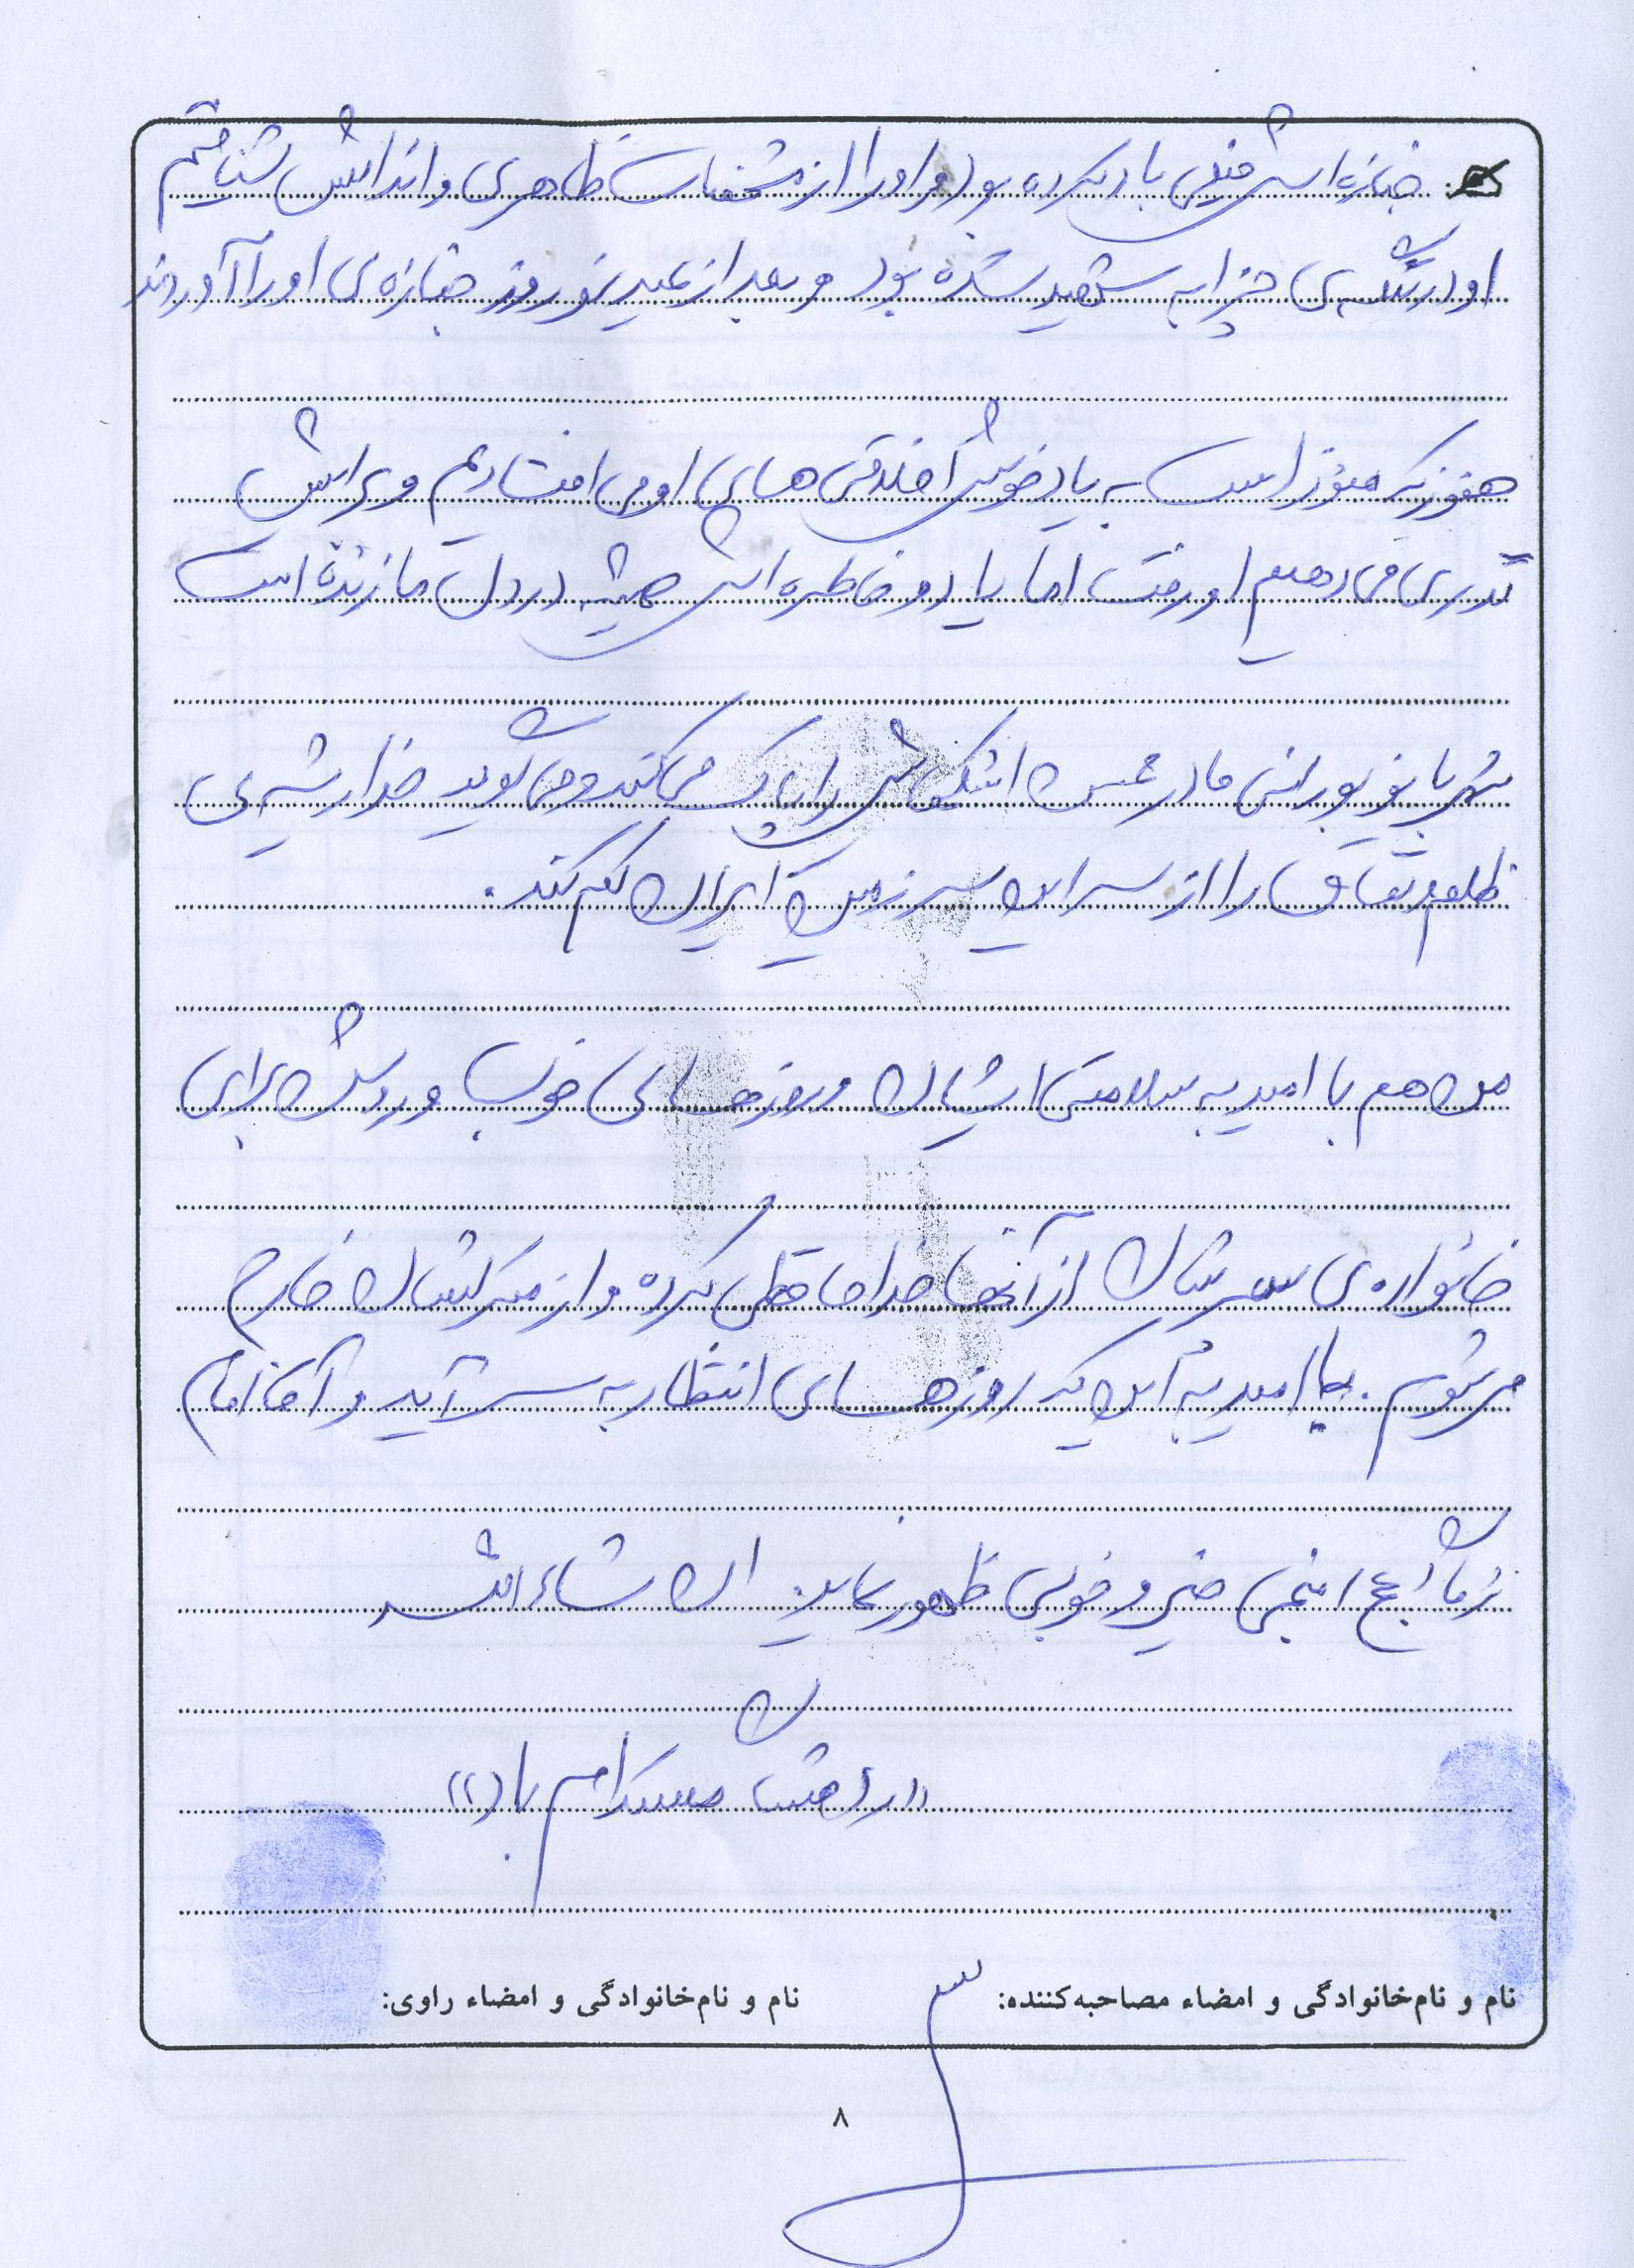 جنازه اش خیلی باد کرده بود و او را از مشخصات ظاهری و اندامش شناختیم
او در تنگه ی چزابه شهید شده بود و بعد از عید نوروز جنازه ی او را آوردند
هنوز که هنوز است به یاد خوش اخلاقی های او می افتادیم و برایش
نذری می دهیم او رفت اما یاد و خاطره اش همیشه در دل ما زنده است
شهربانو پورانی مادر اشکهایش را پاک می کند و می گوید خدا ریشه ی
ظلم و نفاق را از سر این سرزمین ایران کم کند.
من هم با امید به سلامتی ایشان و روزهای خوب و روشن برای
خانواده ی شان از آنها خداحافظی کرده و از منزلشان خارج
می شوم. با امید به این که روزهای انتظار به سر آید و آقا امام
زمان (عج) خیر و خوبی ظهور نماید ان شاء الله
((راهت مستدام باد))
نام و نام‌خانوادگی و امضاء مصاحبه‌کننده:
نام و نام‌خانوادگی و امضاء راوی:
۸